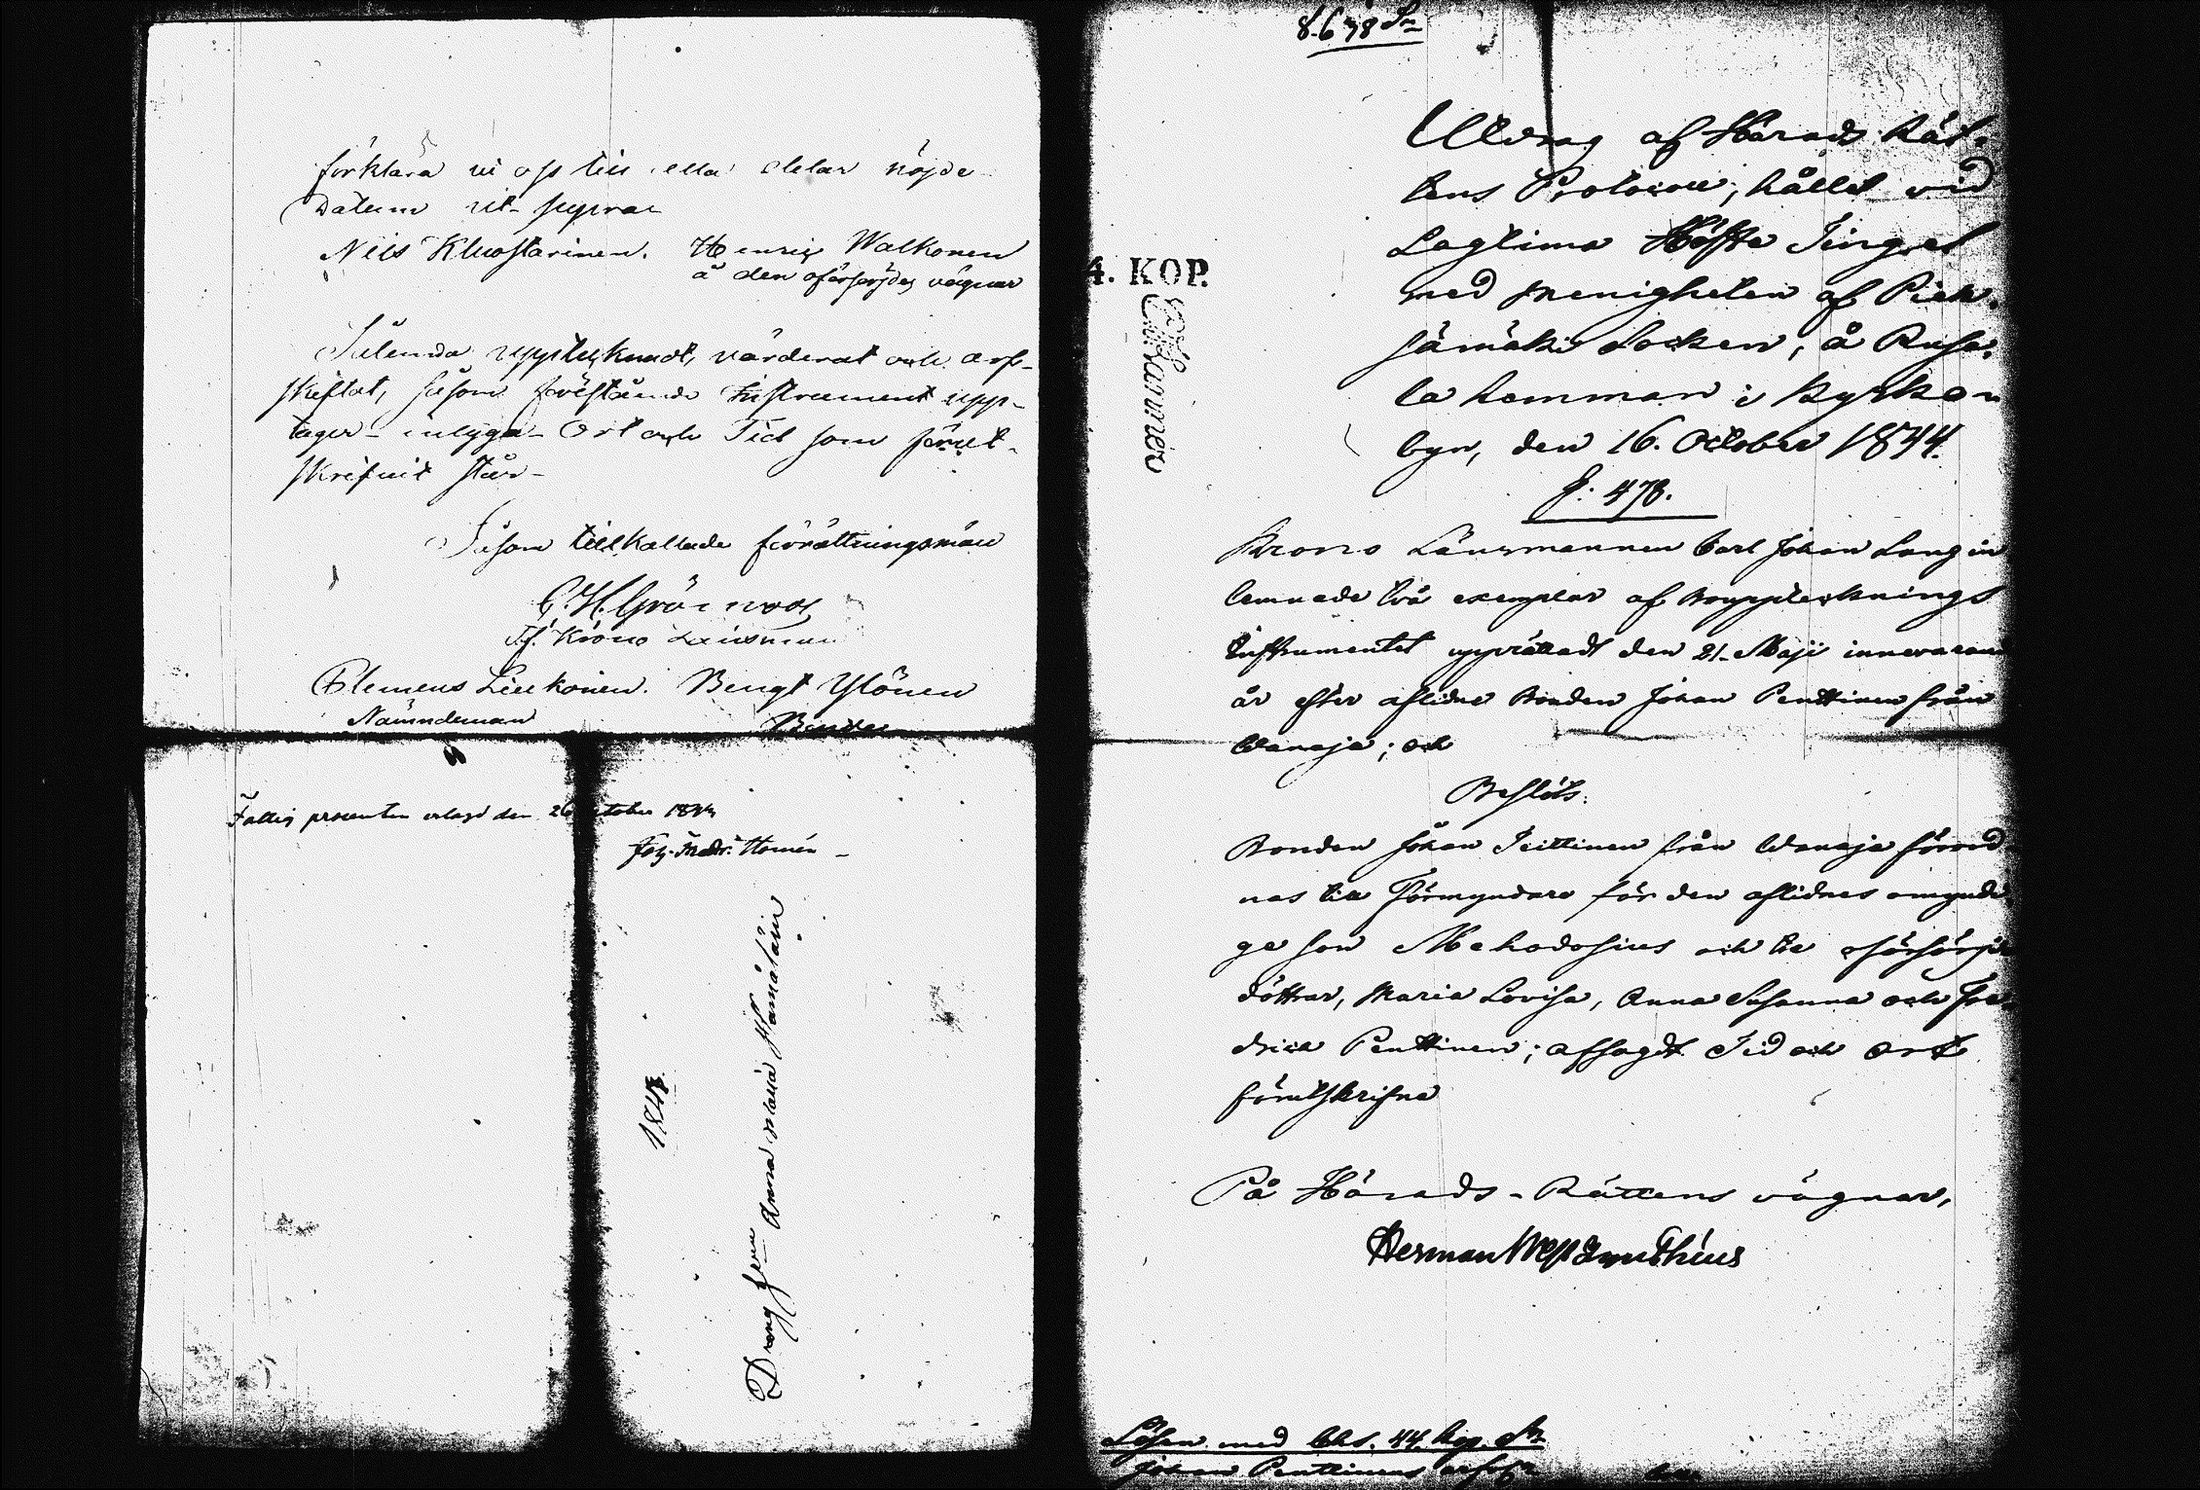 förklara vi oss till alla delar nöjde
Datum ut supra
Nils Kluostarinen. Henric Walkonen
å den oförsörjdes vägnar
Sålunda upptecknadt, värderat och arf-
skiftat, såsom förestående Instrument upp-
tager intyga Ort och Tid som förut-
skrifvit står
Såsom tillkallade förrättningsmän
C. H. Grönroos
Tf. Krono Länsman
Clemens Liukonen. Bengt Ylönen
Nämndeman Bonde
Fattig procenten erlagd den 26 October 1844
Homén
1843
Dreng Anna Maria Hämäläin
8.678
4. KOP.
Utdrag af Härads Rät-
tens Protocoll, hållet vid
Lagtima Höste Tinget
med menigheten af Piek-
sämäki Socken, å Rusa-
la hemman i Kyrko-
byn, den 16. October 1844.
§. 478.
Krono Länsmannen Carl Johan Lang in
lemnade två exemplar af Bouppteknings
Instrumentet upprättadt den 21 Maji innevarand
år efter aflidne Bonden Johan Penttinen från
Wanaja; och
Beslöts:
Bonden Johan Teittinen från Wanaja förord
nas till Förmyndare för den aflidnes omyndi
ge son Mehodosius och de oförsörjda
döttrar, Maria Lovisa, Anna Susanna och Fre
drica Penttinen; afsagdt Tid och Ort
förutskrifne
På Härads-Rättens vägnar,
Herman Wessandthius
Lösen med 44. kop. Sr
Johan Penttinens